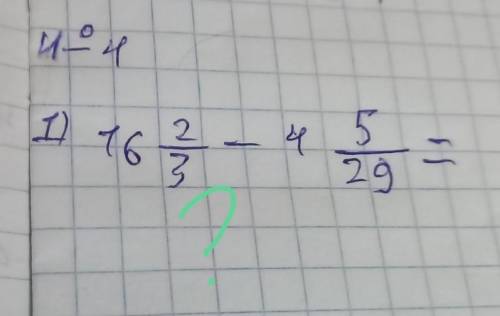 4-°4
1) 16 2/3 - 4 5/29 =
?